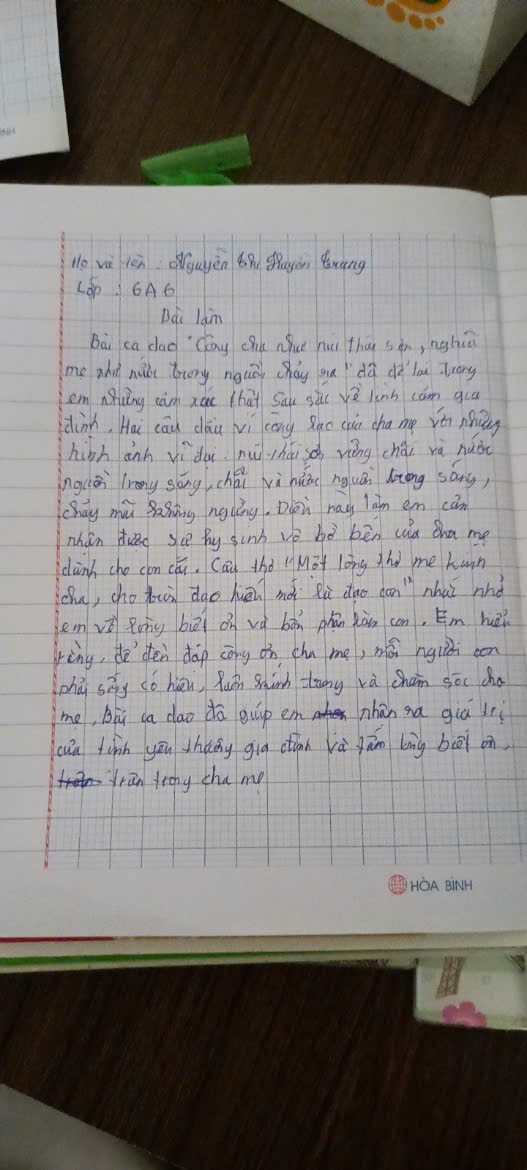 INH
Họ và tên : Nguyễn Thị Huyền Trang
Lớp : 6A6
Bài làm
Bài ca dao "Công cha như núi thái sơn, nghĩa
mẹ như nước trong nguồn chảy ra" đã để lại trong
em những cảm xúc thật sâu sắc về tình cảm gia
đình. Hai câu đầu ví công lao của cha mẹ với những
hình ảnh ví dụ: núi thái sơn vững chãi và nước
nguồn trong sáng, chãi và nước nguồn trong sáng,
chảy mãi không ngừng. Điều này làm em cảm
nhận được sự hy sinh vô bờ bến của cha mẹ
dành cho con cái. Câu thơ "Một lòng thờ mẹ kính
cha, cho tròn đạo hiếu mới là đạo con" nhắc nhở
em về lòng biết ơn và bổn phận làm con. Em hiểu
rằng, để đền đáp công ơn cha mẹ, mỗi người con
phải sống có hiếu, luôn kính trọng và chăm sóc cha
mẹ, Bài ca dao đã giúp em nhận ra giá trị
của tình yêu gia đình và tấm lòng biết ơn,
trân trọng cha mẹ
HÒA BÌNH